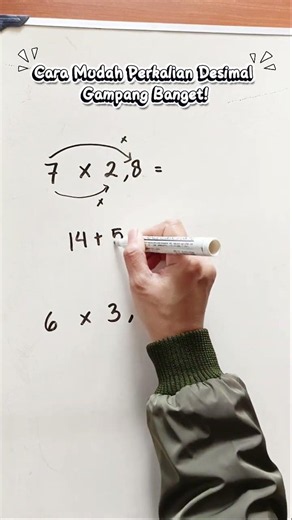 Cara Mudah Perkalian Desimal
Gampang Banget!
x
7 x 2,8 =
x
14 + 5
6 x 3,